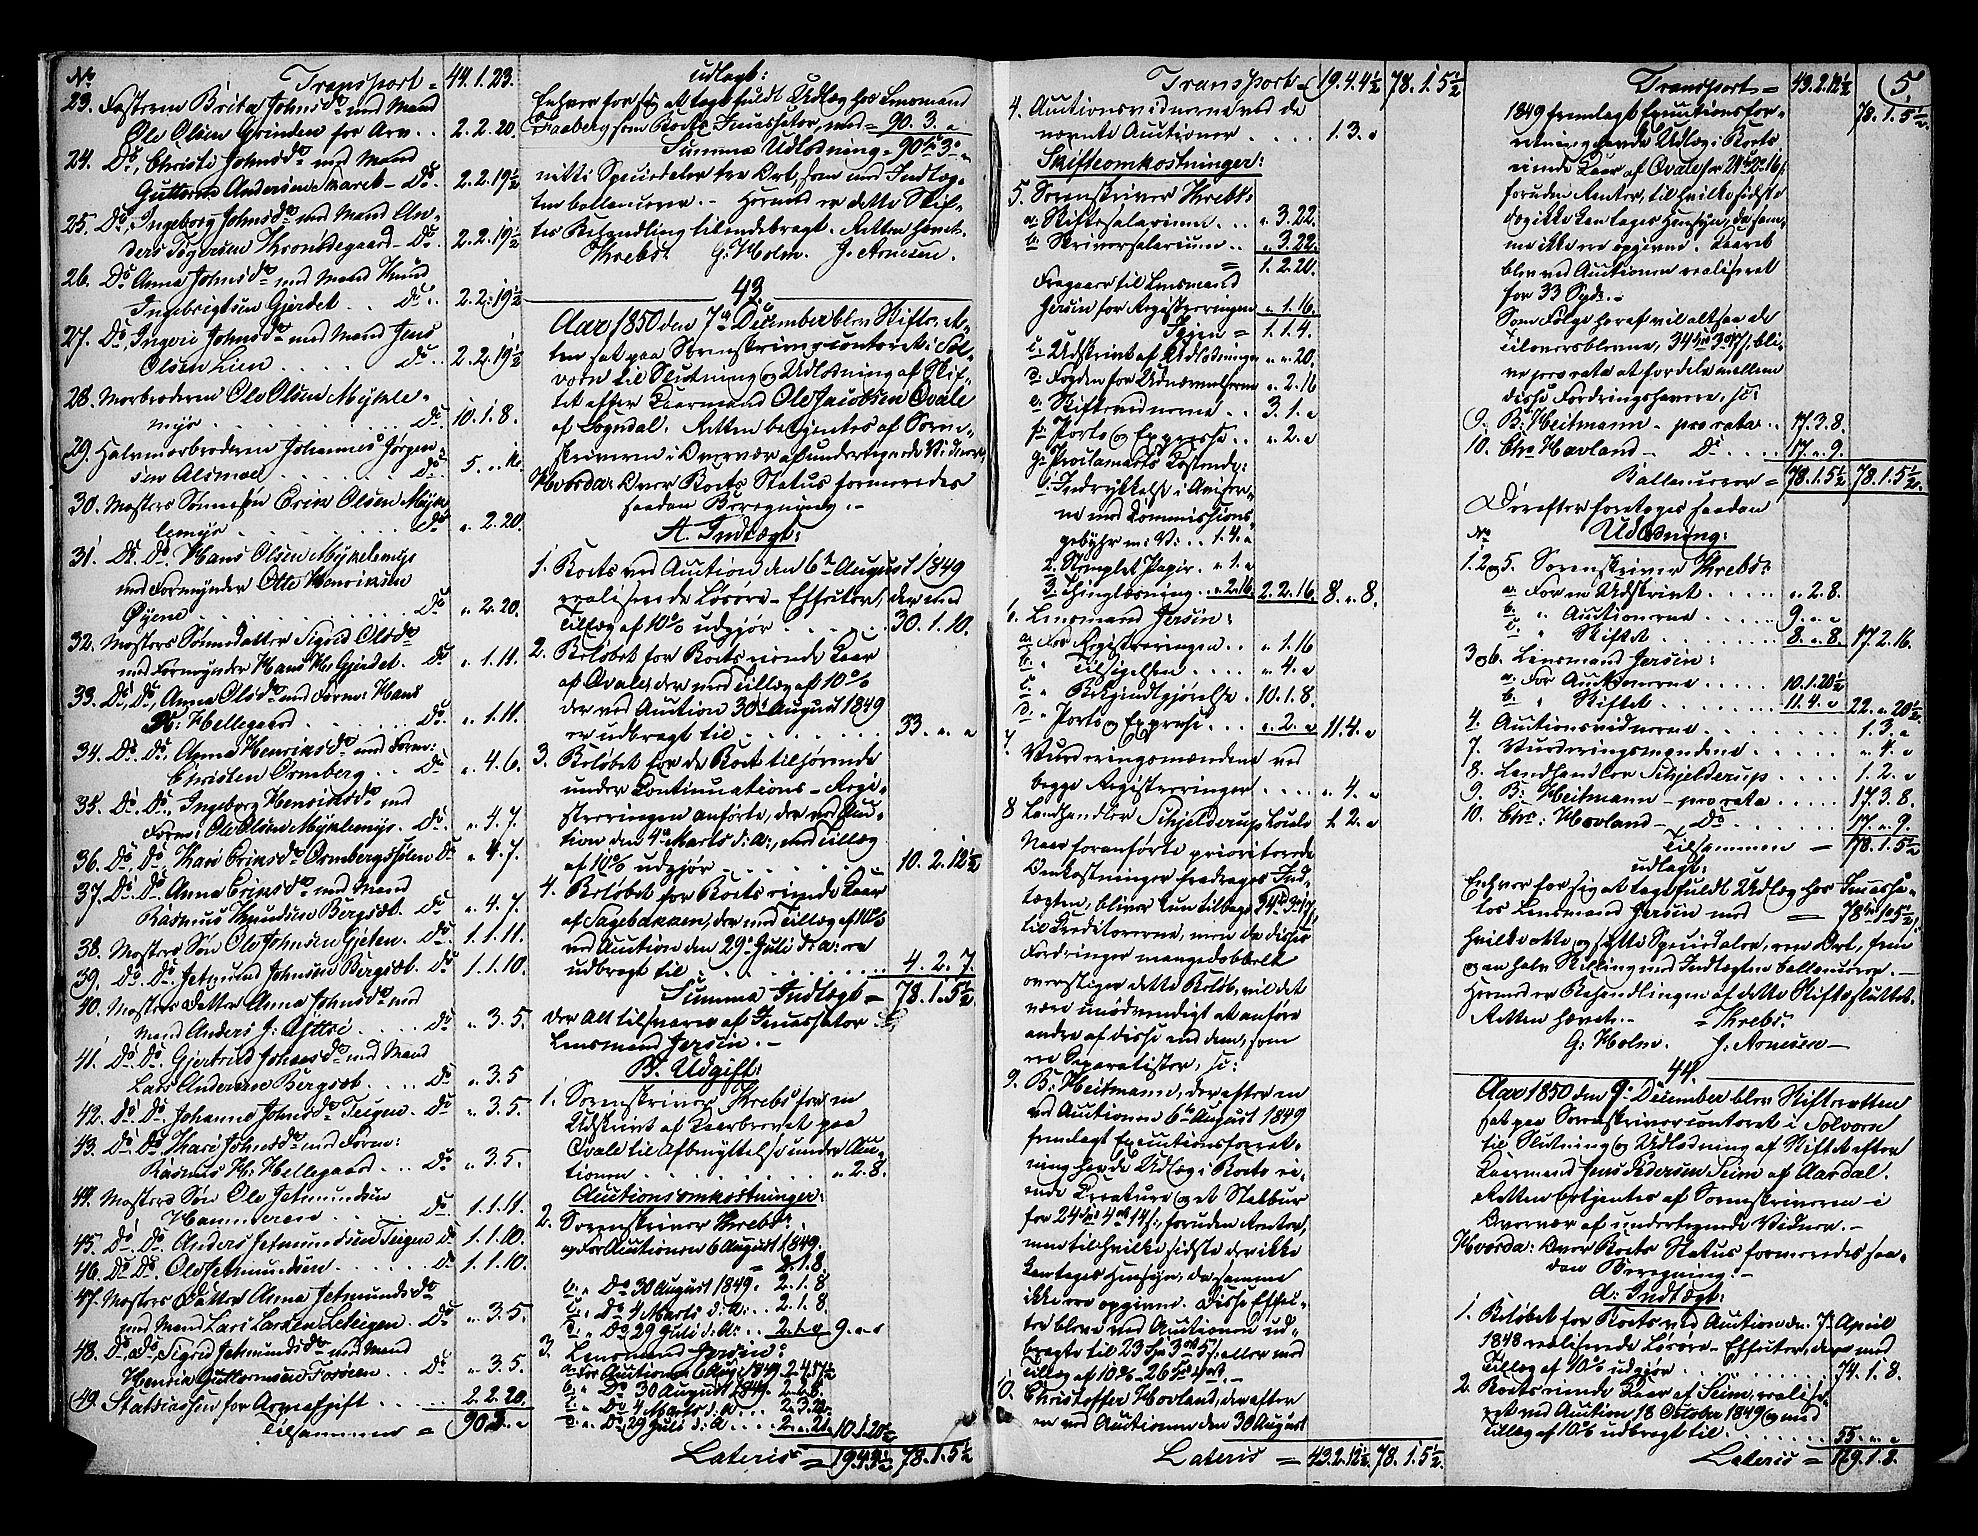 No Transport = 44.1.23.
23. Fasteren Brita Johnsdr med Mand
Ole Olsen Grinden for Arv . . 2.2.20.
24. Do, Christi Johnsdr med Mand
Guttorm Andersen Skaret - Do. 2.2.19½
25. Do, Ingeborg Johnsdr med Mand An-
ders Togersen Kronsdegaard - Do. 2.2.19½
26. Do Anna Johnsdr med Mand Knud
Ingebrigtsen Gjerdet . . Do. 2.2.19½
27. Do Ingeri Johnsdr med Mand Jens
Olsen Lien . . . . . Do. 2.2.19½
28. Morbroderen Ole Olsen Mykle-
myr . . . . . Do. 10.1.8.
29. Halvmorbroderen Johannes Jørgen-
sen Alsmoe . . . . Do. 5. „ 16.
30. Mosters Sønnesøn Erik Olsen Mykle-
lemyr . . . . Do „ 2.20.
31. Do. Do. Hans Olsen Myklemyr
med Formynder Otte Henriksen
Øyene . . . . Do „ 2.20.
32. Mosters Sønnedatter Sigrid Olsdr
med Formynder Hans H. Gjerdet. Do „ 1.11.
33. Do, Do, Anna Olsdr med Form: Hans
H: Hellegaard . . . . Do. „ 1.11.
34. Do. Do. Anna Henriksdr med Form:
Christen Ormberg . . Do „ 4.6.
35. Do. Do. Ingeborg Henriksdr med
Form: Ole Olsen Myklemyr. Do. „ 4.7.
36. Do, Do, Kari Eriksdr Ormbergstølen Do „ 4.7.
37. Do. Do. Anna Eriksdr med Mand
Rasmus Knudsen Bergset. Do „ 4.7.
38. Mosters Søn Ole Johnsen Gjeten. Do. 1.1.11.
39. Do. Do. Jetmund Johnsen Bergset. Do 1.1.10.
40. Mosters Datter Anna Johnsdr med
Mand Anders J: . . . Do „ 3.5.
41. Do. Do. Gjertrud Johnsdr med Mand
Lars Andersen Bergset . . . Do „ 3.5
42. Do. Do. Johanna Johnsdr Teigen. Do „ 3.5.
43. Do. Do. Kari Johnsdr med Form:
Rasmus H: Hellegaard . . . Do „ 3.5.
44. Mosters Søn Ole Jetmundsen
Hammeren . . . . Do. 1.1.11.
45. Do. Do. Anders Jetmundsen Teigen do 1.1.10.
46. Do Do. Ole Jetmundsen . . . . . do 1.1.10.
47. Mosters Datter Anna Jetmundsdr
med Mand Lars Larsen Leteigen. Do „ 3.5.
48. Do, Do, Sigrid Jetmundsdr med Mand
Henrik Guttormsen Forøen . . Do „ 3.5.
49. Statskassen for Arveafgift . . . 2.2.20.
Tilsammen = 90.3. „
udlagt:
Enhver for sig at tage fuldt Udlæg hos Lensmand
Faaberg som Boets Incassator, med = 90. 3. „
Summa Udlodning - 90 Spd 3 „
nitti Speciedaler tre Ort, som med Indtæg-
ten ballancerer. - Hermed er dette Skif-
tes Behandling tilendebragt. Retten hævet.
Krebs. G. Holm. J. Arnesen.
43.
Aar 1850 den 7de December blev Skifte-Ret-
ten sat paa Sorenskrivercontoret i Sol-
vorn til Slutning og Udlodning af Skif-
tet efter Kaarmand Ole Jacobsen Qvale
af Sogndal. Retten betjentes af Soren-
skriveren i Overvær af undertegnede Vidner.
Hvorda: Over Boets Status formeredes
saadan Beregning. -
A. Indtægt:
1. Boets ved Auction den 6te August 1849
realiserede Løsøre-Effecter, der med
Tillæg af 10% udgjør . . . . . 30.1.10.
2. Beløbet for Boets eiende Kaar
af Qvale, der med Tillæg af 10%
der ved Auction 30te August 1849
er udbragt til . . . . . 33. „ „
3. Beløbet for de Boet tilhørende
under Continuations-Regi-
streringen anførte, der ved Auc-
tion den 4de Marts d: A:, med Tillæg
af 10% udgjør . . . . 10. 2. 12½
4. Beløbet for Boets eiende Kaar
af Sagebakken, der med Tillæg af 10%
ved Auction den 29de Juli d: A: er
udbragt til . . . . 4. 2. 7.
Summa Indtægt = 78. 1. 5½
der Alt tilsvares af Incassator
Lensmand Jersin. -
B. Udgift:
1. Sorenskriver Krebs for en
Udskrift af Kaarbrevet paa
Qvale til Afbenyttelse under Auc-
tionen . . . . . „ 2.8.
Auctionsomkostninger:
2. Sorenskriver Krebs:
a, For Auctionen 6 August 1849.
= 2.1.8.
b. „ Do 30 August 1849. 2.1.8
c. „ Do 4 Marts d: A: . . 2.1.8.
d. „ Do 29 Juli d: A: . . 2.1.„ 9. „ „
3. Lensmand Jersin:
a. For Auctionen 6 Aug: 1849
b. „ Do 30 August 1849.
c. „ Do 4 Marts d: A: . . 2.3.20.
d. „ Do 29 Juli d: A: . . 10.1.20½
Lateris = 19.4.4½ 78. 1. 5½
Transport = 19.4.4½ 78. 1. 5½
4. Auctionsvidnerne ved de
nævnte Auctioner . . . . 1.3. „
Skifteomkostninger:
5. Sorenskriver Krebs:
a. Skiftesalarium . . . „ 3.22.
b. Skriversalarium . . „ 3.22.
= 1.2.20.
Fragaaer til Lensmand
Jersin for Registreringen „ 1.16.
Igjen = 1.1.4.
c. Udskrift af Udlodningen „ „ 20.
d. Fogden for Udnævnelserne „ 2.16
e. Skiftevidnerne . . 3.1. „
f. Porto og Expresse . . „ 2. „
g. Proclamaets Kostende:
1. Indrykkelse i Aviser-
ne med Kommissions-
gebyhr m: V: . . 1.4. „
2. Stemplet Papir . „ 1. „
3. Thinglæsning . . „ 2.16 2.2.16. 8. „ 8.
6. Lensmand Jersin:
a. For Registreringen . . „ 1.16
b. „ Tilsigelsen . . . . „ 4. „
c. „ Bekjendtgjørelse . 10.1.8.
d. „ Porto og Expresse . . . „ 2. „ 11.4. „
7. Vurderingsmændene ved
begge Registreringer . . . . „ 4. „
8 Landhandler Schjelderups 1. 2. „
Naar foranførte prioriterede
Omkostninger fradrages Ind-
tægten, bliver kun tilbage 34 Spd
til Kreditorerne, men da disses
Fordringer mangedobbelt
overstiger dette Beløb, vil det
være unødvendigt at anføre
andre af disse end dem, som
ere Separatister, sc:
9. B: Heitmann, der efter en
ved Auctionen 6te August 1849
fremlagt Executionsforret-
ning havde Udlæg i Boets ei-
ende Creature og et Stabbur
for 24 Spd 4 ort 14 s., foruden Renter,
men til hvilke sidste der ikke
kan tages Hensyn, da samme
ikke ere opgivne. Disse Effec-
ter bleve ved Auctionen ud-
bragte til 23 Spd 3 ort 5 s. eller med
Tillæg af 10% - 26 Spd „ ort. -
10. Christoffer Hovland, der efter
en ved Auctionen den 30 August
Lateris = 43.2.12½ 78. 1. 5½
Transport = 43.2.12½ 5.
78. 1. 5½
1849 fremlagt Executionsfor-
retning havde Udlæg i Boets
eiende Kaar af Qvale for
foruden Renter, til hvilke sidste
dog ikke kan tages Hensyn, da sam-
me ikke ere opgivne. Kaaret
blev ved Auctionen realiseret
for 33 Spd. -
Som Følge heraf vil altsaa de
tiloversblevne, 34 Spd bli-
ve pro rata at fordele mellem
disse Fordringshavere, sc:
9. B: Heitmann - pro rata . . 17.3.8.
10. Chr. Hovland - Do . . . . 17. „ 9.
Ballancerer = 78.1.5½ 78.1.5½
Derefter foretoges saadan
No Udlodning:
1.2 og 5. Sorenskriver Krebs:
a. For en Udskrift . . . . . „ 2.8.
b. „ Auctionerne . . . . 9. „ „
c. „ Skiftet . . . . . 8. „ 8. 17.2.16.
3 og 6. Lensmand Jersin:
a. For Auctionerne . . . . . 10.1.20½
b. „ Skiftet . . . . . . 11.4. „ 22. „ 20½
4. Auctionsvidnerne . . . . . 1.3. „
7. Vurderingsmændene . . . . „ 4. „
8. Landhandler Schjelderup . . . . 1.2. „
9. B: Heitmann - pro rata . . . . 17.3.8.
10. Chr: Hovland - Do . . . . 17. „ 9.
Tilsammen = 78.1.5½
udlagt:
Enhver for sig at tage fuldt Udlæg hos Incassa-
tor Lensmand Jersin med = 78 Spd 1 ort 5½ s.
hvilke otte og sytti Speciedaler, een Ort, fem
og en halv Skilling med Indtægten ballancerer. -
Hermed er Behandlingen af dette Skifte sluttet.
Retten hævet. - = Krebs.
G. Holm. J: Arnesen -
44.
Aar 1850 den 9de December blev Skifteretten
sat paa Sorenskrivercontoret i Solvorn
til Slutning og Udlodning af Skiftet efter
Kaarmand Jens Pedersen Seim af Aardal.
Retten betjentes af Sorenskriveren i
Overvær af undertegnede Vidner. -
Hvorda: Over Boets Status formeredes saa-
dan Beregning: -
A: Indtægt:
1. Beløbet for Boets ved Auction den 7de April
1848 realiserede Løsøre-Effecter, der med
Tillæg af 10% udgjør . . . . . 74.1.8.
2. Boets eiende Kaar af Seim, realise-
ret ved Auction 18 October 1849 og med
Tillæg af 10% udbragt til . . . . . 55. „ „
Lateris = 129.1.8.